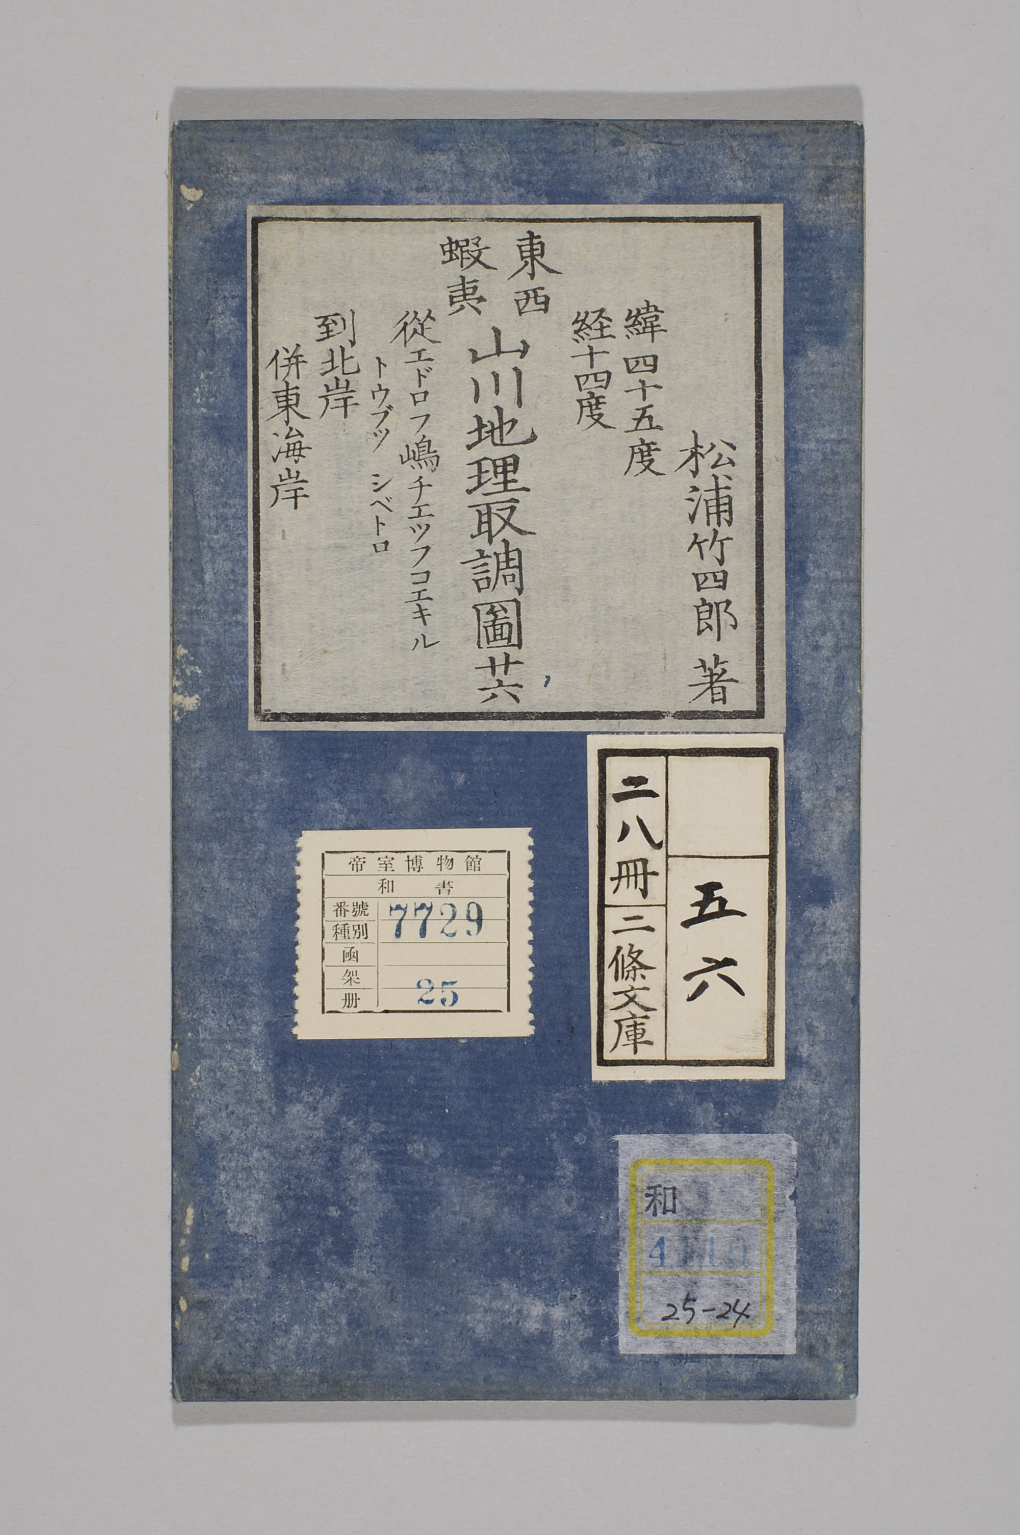 松浦竹四郎 著
緯四十五度
経十四度
東西
蝦夷
山川地理取調圖廿六
從エドロフ嶋チエツフコエキル
トウブツ シベトロ
到北岸
併東海岸
五六
二八冊
二條文庫
帝室博物館
和書
番號 7729
種別
函
架
册 25
和
4110
25-24